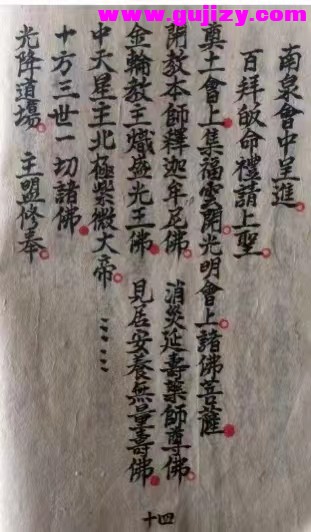 www.gujizy.com
南泉會中呈進
百拜皈命禮請上聖
奠土會上集福雲開光明會上諸佛菩薩
開教本師釋迦牟尼佛 消災延壽藥師尊佛
金輪教主熾盛光王佛 見居安養無量壽佛
中天星主北極紫微大帝
十方三世一切諸佛
光降道場 主盟修奉
十四